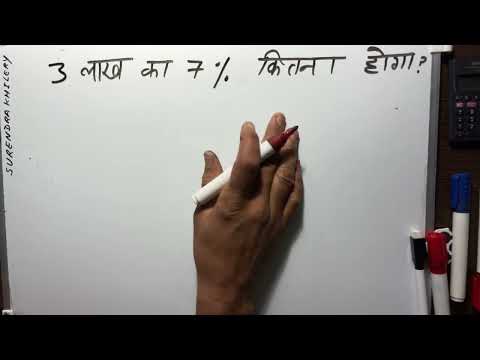 3 लाख का 7 % कितना होगा?
SURENDRA KHILERY